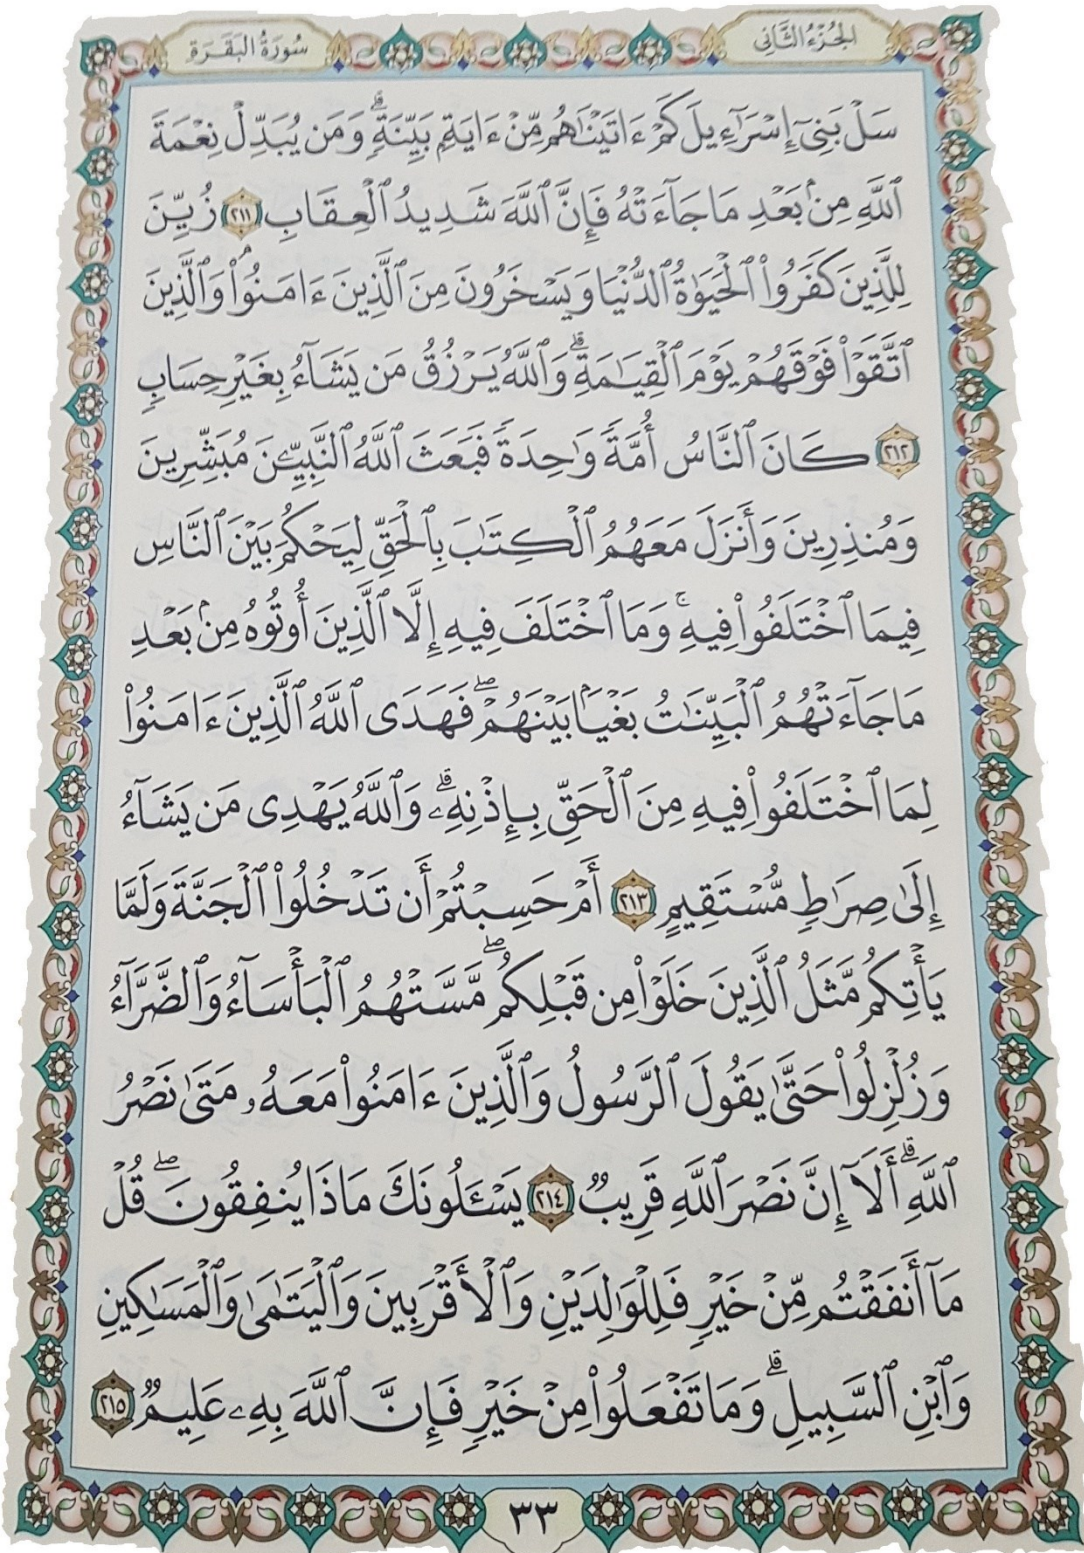 الجُزْءُ الثَّانِي
سُورَةُ البَقَرَةِ
سَلْ بَنِىٓ إِسْرَٰٓءِيلَ كَمْ ءَاتَيْنَٰهُم مِّنْ ءَايَةِۭ بَيِّنَةٖۗ وَمَن يُبَدِّلْ نِعْمَةَ
ٱللَّهِ مِنۢ بَعْدِ مَا جَآءَتْهُ فَإِنَّ ٱللَّهَ شَدِيدُ ٱلْعِقَابِ ٢١١ زُيِّنَ
لِلَّذِينَ كَفَرُوا۟ ٱلْحَيَوٰةُ ٱلدُّنْيَا وَيَسْخَرُونَ مِنَ ٱلَّذِينَ ءَامَنُوا۟ۘ وَٱلَّذِينَ
ٱتَّقَوْا۟ فَوْقَهُمْ يَوْمَ ٱلْقِيَٰمَةِۗ وَٱللَّهُ يَرْزُقُ مَن يَشَآءُ بِغَيْرِ حِسَابٖ
٢١٢ كَانَ ٱلنَّاسُ أُمَّةٗ وَٰحِدَةٗ فَبَعَثَ ٱللَّهُ ٱلنَّبِيِّۦنَ مُبَشِّرِينَ
وَمُنذِرِينَ وَأَنزَلَ مَعَهُمُ ٱلْكِتَٰبَ بِٱلْحَقِّ لِيَحْكُمَ بَيْنَ ٱلنَّاسِ
فِيمَا ٱخْتَلَفُوا۟ فِيهِۚ وَمَا ٱخْتَلَفَ فِيهِ إِلَّا ٱلَّذِينَ أُوتُوهُ مِنۢ بَعْدِ
مَا جَآءَتْهُمُ ٱلْبَيِّنَٰتُ بَغْيَۢا بَيْنَهُمْۖ فَهَدَى ٱللَّهُ ٱلَّذِينَ ءَامَنُوا۟
لِمَا ٱخْتَلَفُوا۟ فِيهِ مِنَ ٱلْحَقِّ بِإِذْنِهِۦۗ وَٱللَّهُ يَهْدِى مَن يَشَآءُ
إِلَىٰ صِرَٰطٖ مُّسْتَقِيمٍ ٢١٣ أَمْ حَسِبْتُمْ أَن تَدْخُلُوا۟ ٱلْجَنَّةَ وَلَمَّا
يَأْتِكُم مَّثَلُ ٱلَّذِينَ خَلَوْا۟ مِن قَبْلِكُمۖ مَّسَّتْهُمُ ٱلْبَأْسَآءُ وَٱلضَّرَّآءُ
وَزُلْزِلُوا۟ حَتَّىٰ يَقُولَ ٱلرَّسُولُ وَٱلَّذِينَ ءَامَنُوا۟ مَعَهُۥ مَتَىٰ نَصْرُ
ٱللَّهِۗ أَلَآ إِنَّ نَصْرَ ٱللَّهِ قَرِيبٞ ٢١٤ يَسْـَٔلُونَكَ مَاذَا يُنفِقُونَۖ قُلْ
مَآ أَنفَقْتُم مِّنْ خَيْرٖ فَلِلْوَٰلِدَيْنِ وَٱلْأَقْرَبِينَ وَٱلْيَتَٰمَىٰ وَٱلْمَسَٰكِينِ
وَٱبْنِ ٱلسَّبِيلِۗ وَمَا تَفْعَلُوا۟ مِنْ خَيْرٖ فَإِنَّ ٱللَّهَ بِهِۦ عَلِيمٞ ٢١٥
٣٣